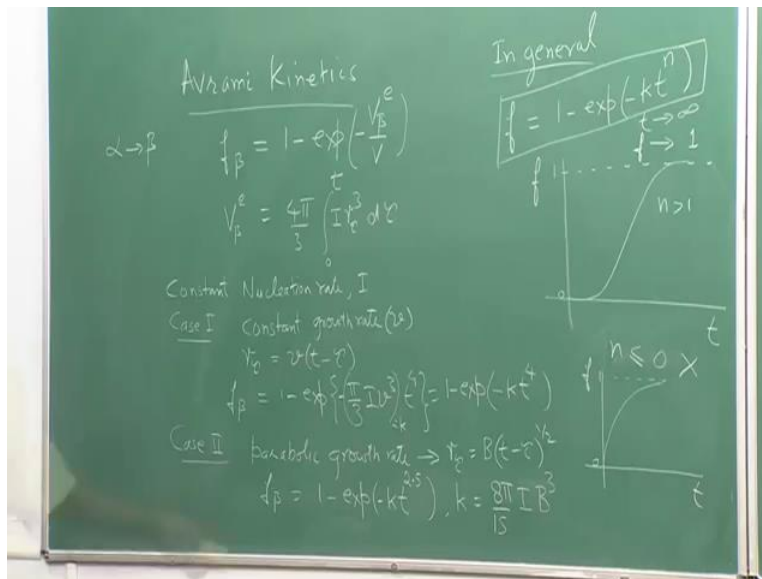 Avrami Kinetics
α→β f_β = 1 - exp(-V_β^e/V)
V_β^e = 4π/3 ∫_0^t I r_τ^3 dτ
Constant Nucleation rate, I
Case I Constant growth rate (v)
r_τ = v(t-τ)
f_β = 1 - exp{-(π/3 I v^3) t^4} = 1 - exp(-kt^4)
k
Case II parabolic growth rate → r_τ = B(t-τ)^1/2
f_β = 1 - exp(-kt^2.5), k = 8π/15 I B^3
In general
f = 1 - exp(-kt^n)
t→∞
f→1
f
1
n>1
0
t
n ≤ 0 X
f
0
t